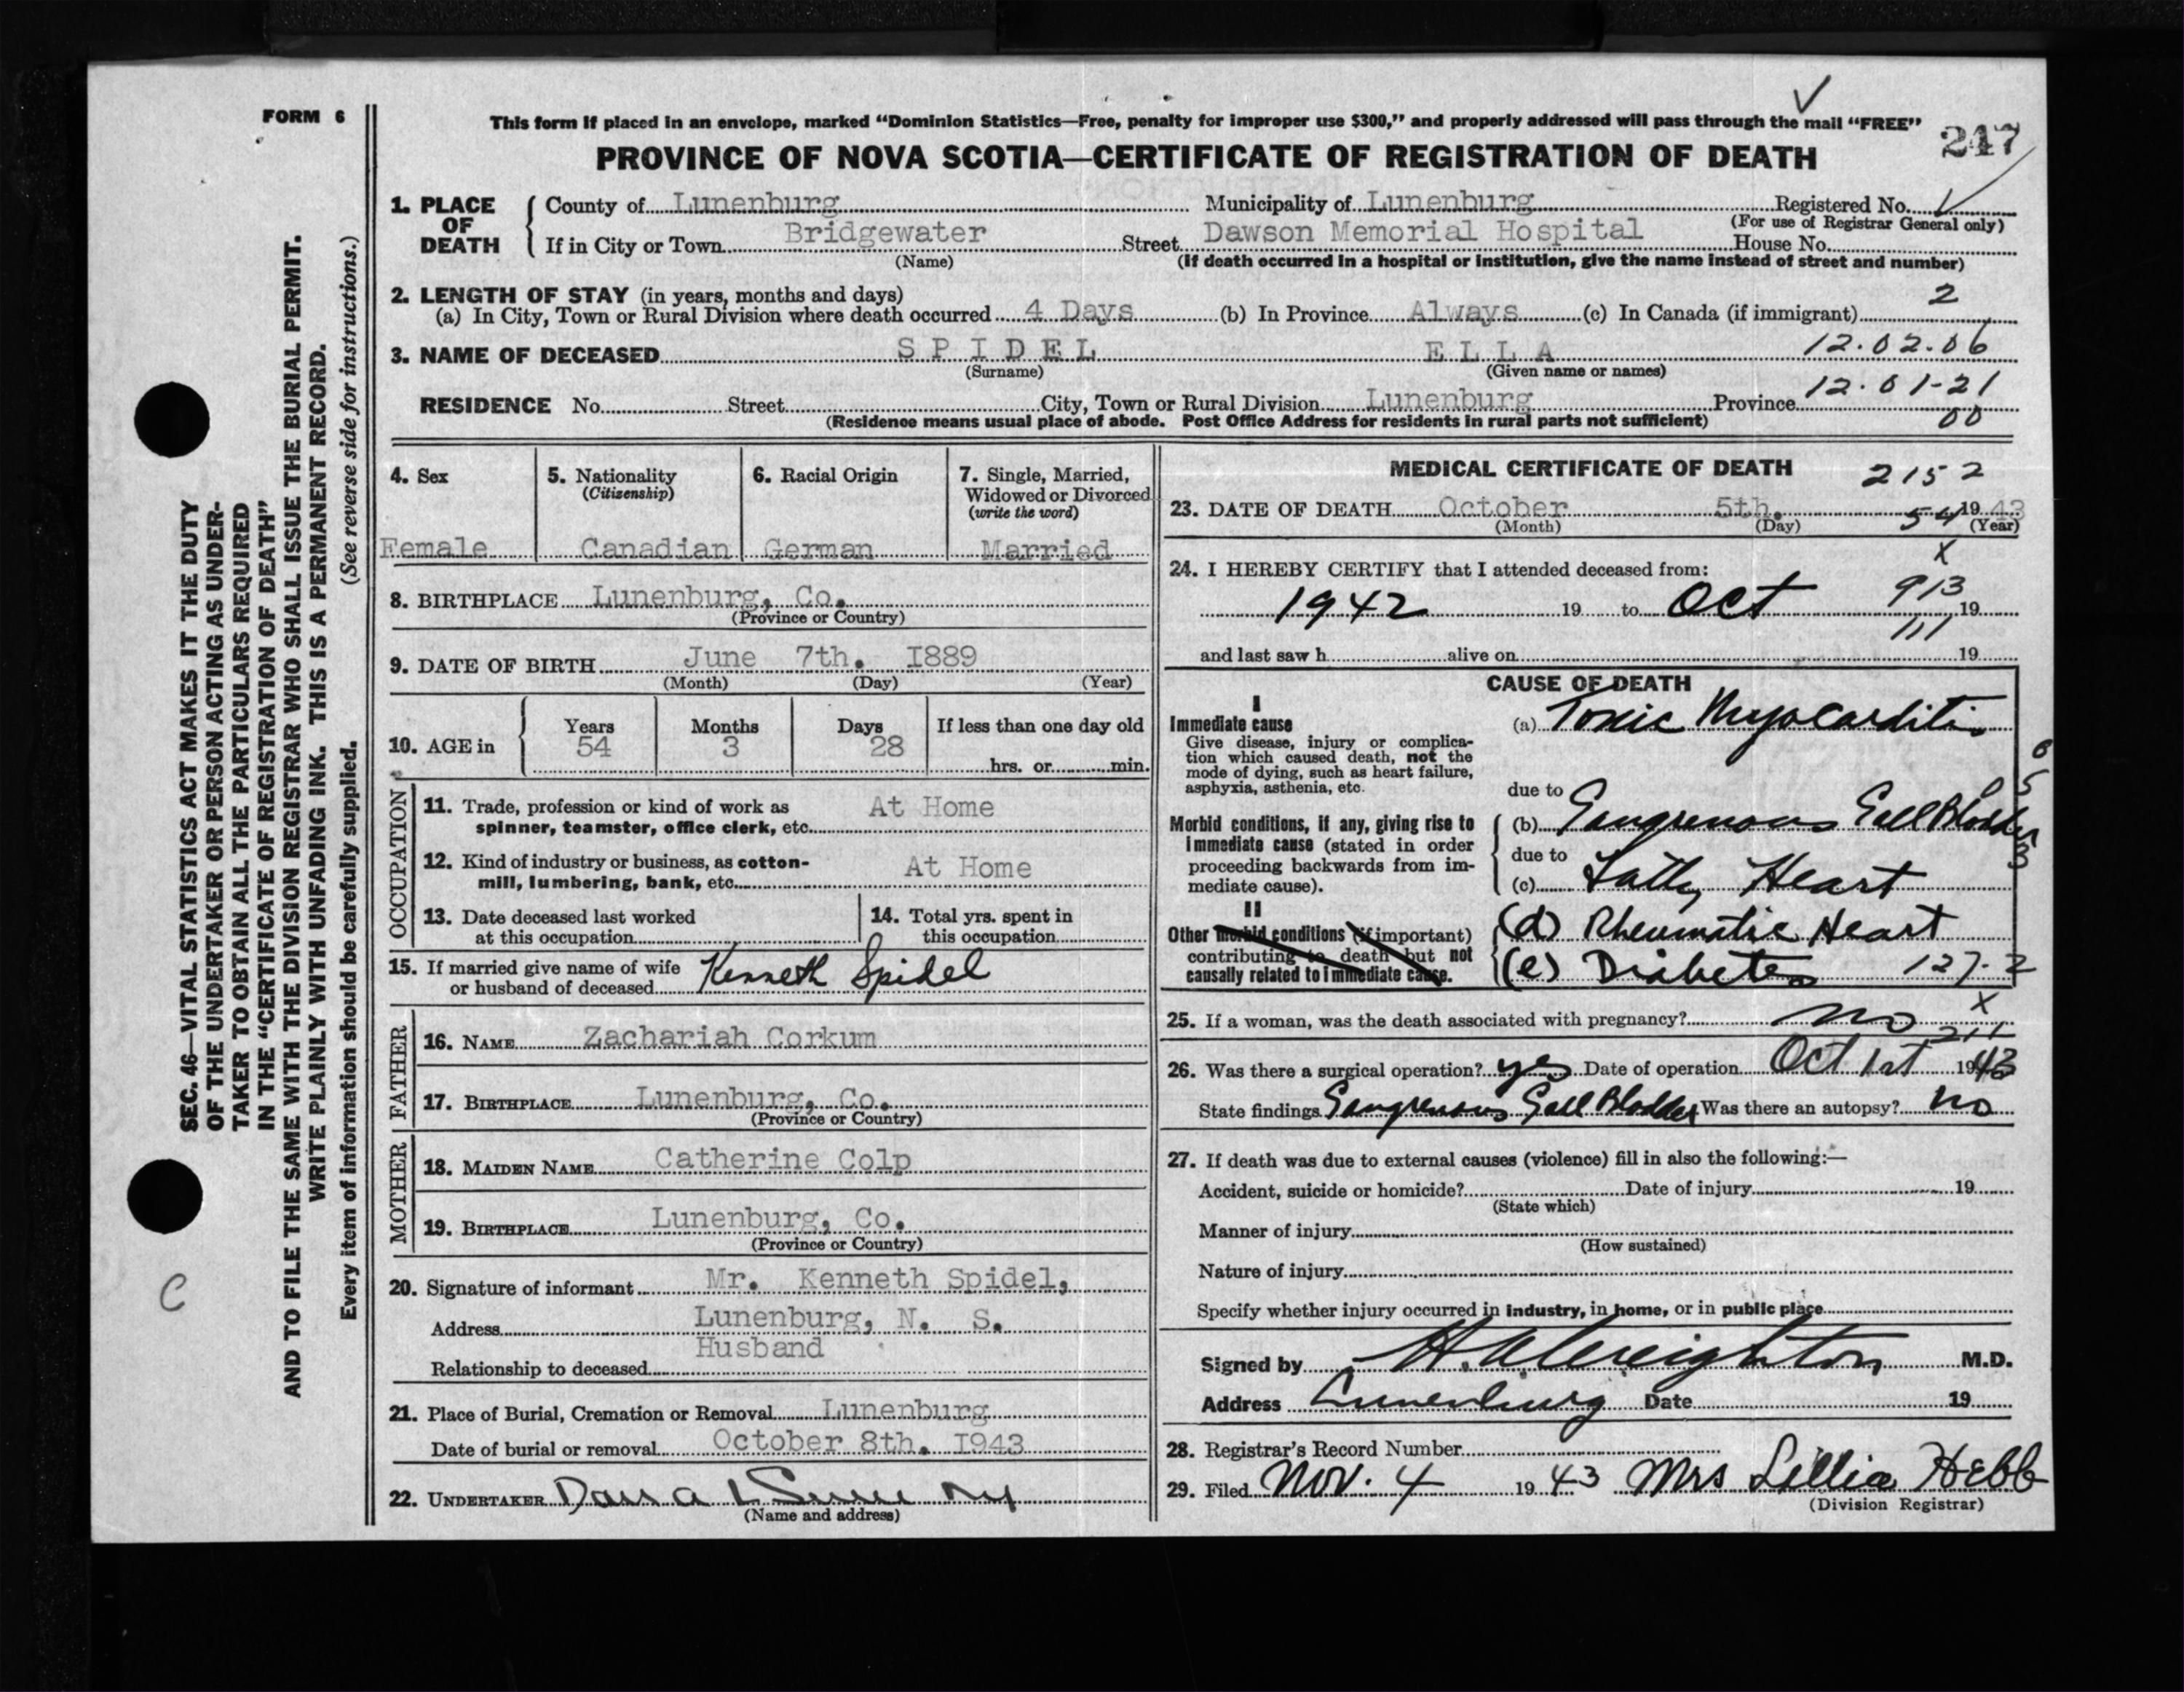 FORM 6
This form if placed in an envelope, marked “Dominion Statistics—Free, penalty for improper use $300,” and properly addressed will pass through the mail “FREE”
247
PROVINCE OF NOVA SCOTIA—CERTIFICATE OF REGISTRATION OF DEATH
SEC. 46—VITAL STATISTICS ACT MAKES IT THE DUTY
OF THE UNDERTAKER OR PERSON ACTING AS UNDER-
TAKER TO OBTAIN ALL THE PARTICULARS REQUIRED
IN THE “CERTIFICATE OF REGISTRATION OF DEATH”
AND TO FILE THE SAME WITH THE DIVISION REGISTRAR WHO SHALL ISSUE THE BURIAL PERMIT.
WRITE PLAINLY WITH UNFADING INK. THIS IS A PERMANENT RECORD.
Every item of information should be carefully supplied. (See reverse side for instructions.)
C
1. PLACE OF DEATH
County of Lunenburg Municipality of Lunenburg Registered No.
(For use of Registrar General only)
If in City or Town Bridgewater Street Dawson Memorial Hospital House No.
(Name) (If death occurred in a hospital or institution, give the name instead of street and number)
2. LENGTH OF STAY (in years, months and days) 2
(a) In City, Town or Rural Division where death occurred 4 Days (b) In Province Always (c) In Canada (if immigrant)
3. NAME OF DECEASED SPIDEL ELLA 12.02.06
(Surname) (Given name or names)
12.01-21
RESIDENCE No. Street City, Town or Rural Division Lunenburg Province
(Residence means usual place of abode. Post Office Address for residents in rural parts not sufficient) 00
4. Sex
Female
5. Nationality
(Citizenship)
Canadian
6. Racial Origin
German
7. Single, Married,
Widowed or Divorced
(write the word)
Married
8. BIRTHPLACE Lunenburg, Co.
(Province or Country)
9. DATE OF BIRTH June 7th. I889
(Month) (Day) (Year)
10. AGE in
Years Months Days If less than one day old
54 3 28
hrs. or min.
OCCUPATION
11. Trade, profession or kind of work as At Home
spinner, teamster, office clerk, etc.
12. Kind of industry or business, as cotton- At Home
mill, lumbering, bank, etc.
13. Date deceased last worked
at this occupation
14. Total yrs. spent in
this occupation
15. If married give name of wife
or husband of deceased Kenneth Spidel
FATHER
16. NAME Zachariah Corkum
17. BIRTHPLACE Lunenburg, Co.
(Province or Country)
MOTHER
18. MAIDEN NAME Catherine Colp
19. BIRTHPLACE Lunenburg, Co.
(Province or Country)
20. Signature of informant Mr. Kenneth Spidel,
Address Lunenburg, N. S.
Relationship to deceased Husband
21. Place of Burial, Cremation or Removal Lunenburg
Date of burial or removal October 8th. I943
22. UNDERTAKER
(Name and address)
MEDICAL CERTIFICATE OF DEATH 2152
23. DATE OF DEATH October 5th. 1943
(Month) (Day) 54 (Year)
x
24. I HEREBY CERTIFY that I attended deceased from:
1942 19 to Oct 913 19
111
and last saw h alive on 19
CAUSE OF DEATH
I
Immediate cause
Give disease, injury or complica-
tion which caused death, not the
mode of dying, such as heart failure,
asphyxia, asthenia, etc.
(a) Toxic Myocarditis
due to
Morbid conditions, if any, giving rise to
immediate cause (stated in order
proceeding backwards from im-
mediate cause).
(b) Gangrenous Gall Bladder
due to
(c) Fatty Heart
II
Other morbid conditions (if important)
contributing to death but not
causally related to immediate cause.
(d) Rheumatic Heart
(e) Diabetes 127-2
x
25. If a woman, was the death associated with pregnancy? no
211
26. Was there a surgical operation? yes Date of operation Oct 1st 1943
State findings Gangrenous Gall Bladder Was there an autopsy? no
27. If death was due to external causes (violence) fill in also the following:—
Accident, suicide or homicide? Date of injury 19
(State which)
Manner of injury
(How sustained)
Nature of injury
Specify whether injury occurred in industry, in home, or in public place
Signed by H.A. Creighton M.D.
Address Lunenburg Date 19
28. Registrar's Record Number
29. Filed Nov. 4 1943 Mrs Lillia Hebb
(Division Registrar)